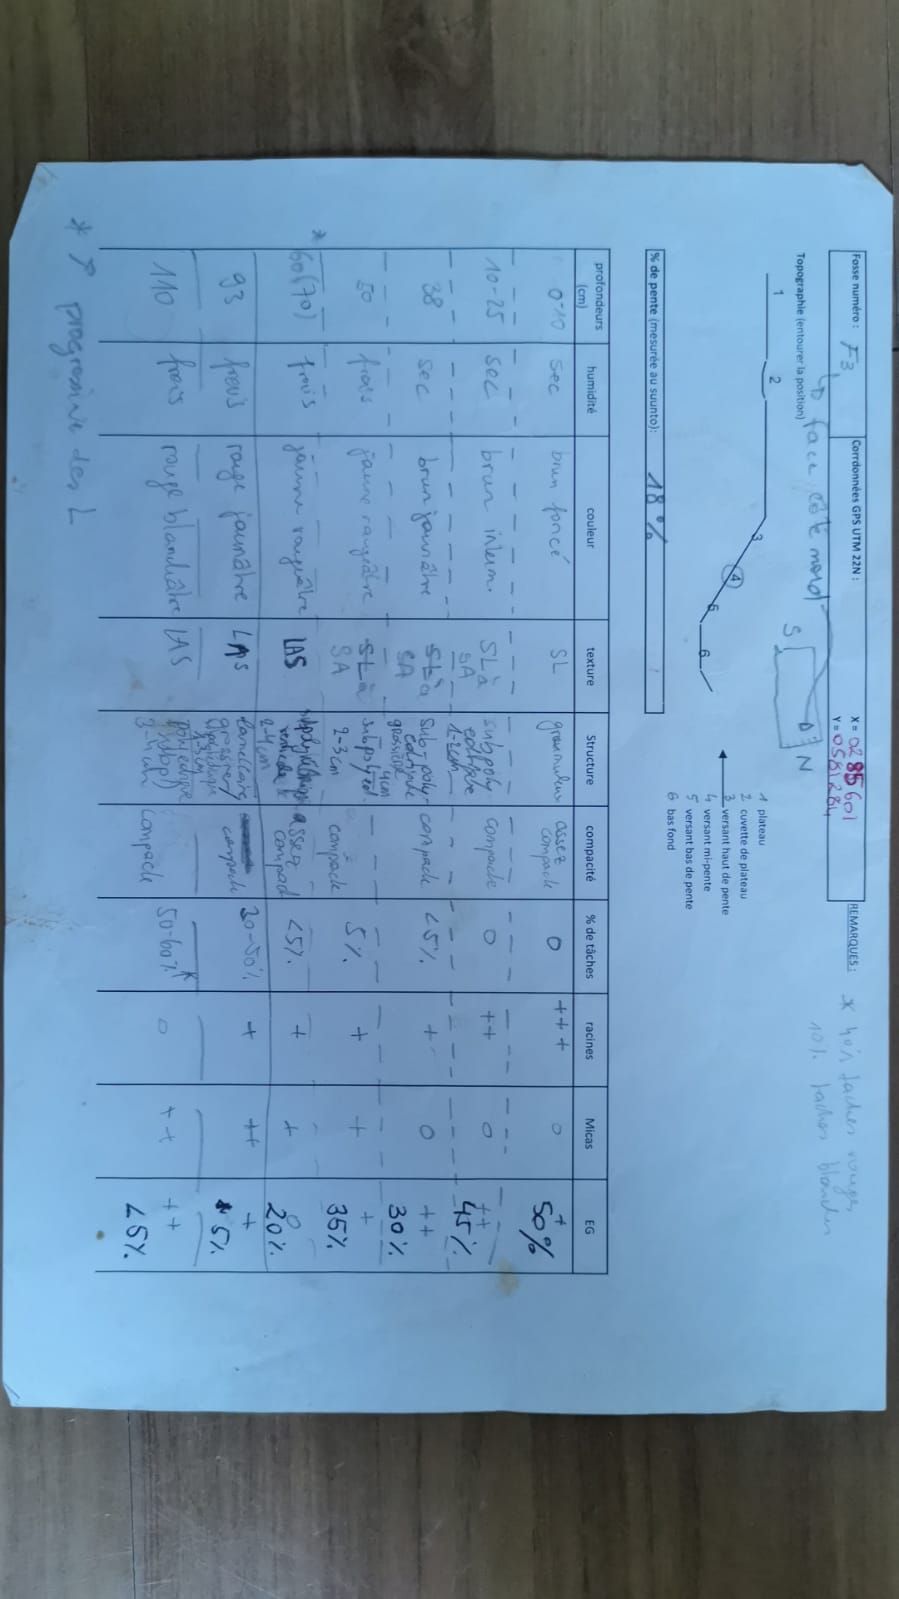 Fosse numéro : F3 Corrdonnées GPS UTM 22N : X = 0285601 REMARQUES : * 40% taches rouges
Y = 0581284 10% taches blanches
face côté nord
S N
Topographie (entourer la position)
1 2 3 4 5 6
1 plateau
2 cuvette de plateau
3 versant haut de pente
4 versant mi-pente
5 versant bas de pente
6 bas fond
% de pente (mesurée au suunto): 18%
profondeurs (cm) humidité couleur texture Structure compacité % de tâches racines Micas EG
0-10 sec brun foncé SL assez compacte 0 +++ 0 + 50%
10-25 sec brun interm. SL à SA subpoly edrique 1-2cm compacte 0 ++ 0 ++ 45%
38 sec brun jaunâtre SL à SA sub-poly-edrique grossière 4cm compacte <5% + 0 ++ 30%
50 frais jaune rougeâtre SL à SA subpolyed. 2-3cm compacte 5% + + + 35%
* 60(70) frais jaune rougeâtre LAS 2-4cm assez compact <5% + + 0 20%
93 frais rouge jaunâtre LAS lamellaire 1-3cm compacte 30-50% + ++ + 5%
110 frais rouge blanchâtre LAS polyedrique (subpl) 3-4cm compacte 50-60%* 0 ++ ++ <5%
* ↗ progressive des L